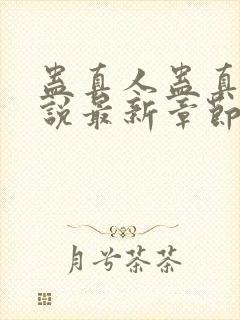 蛊真人蛊真
說最新章節
月兮茶茶